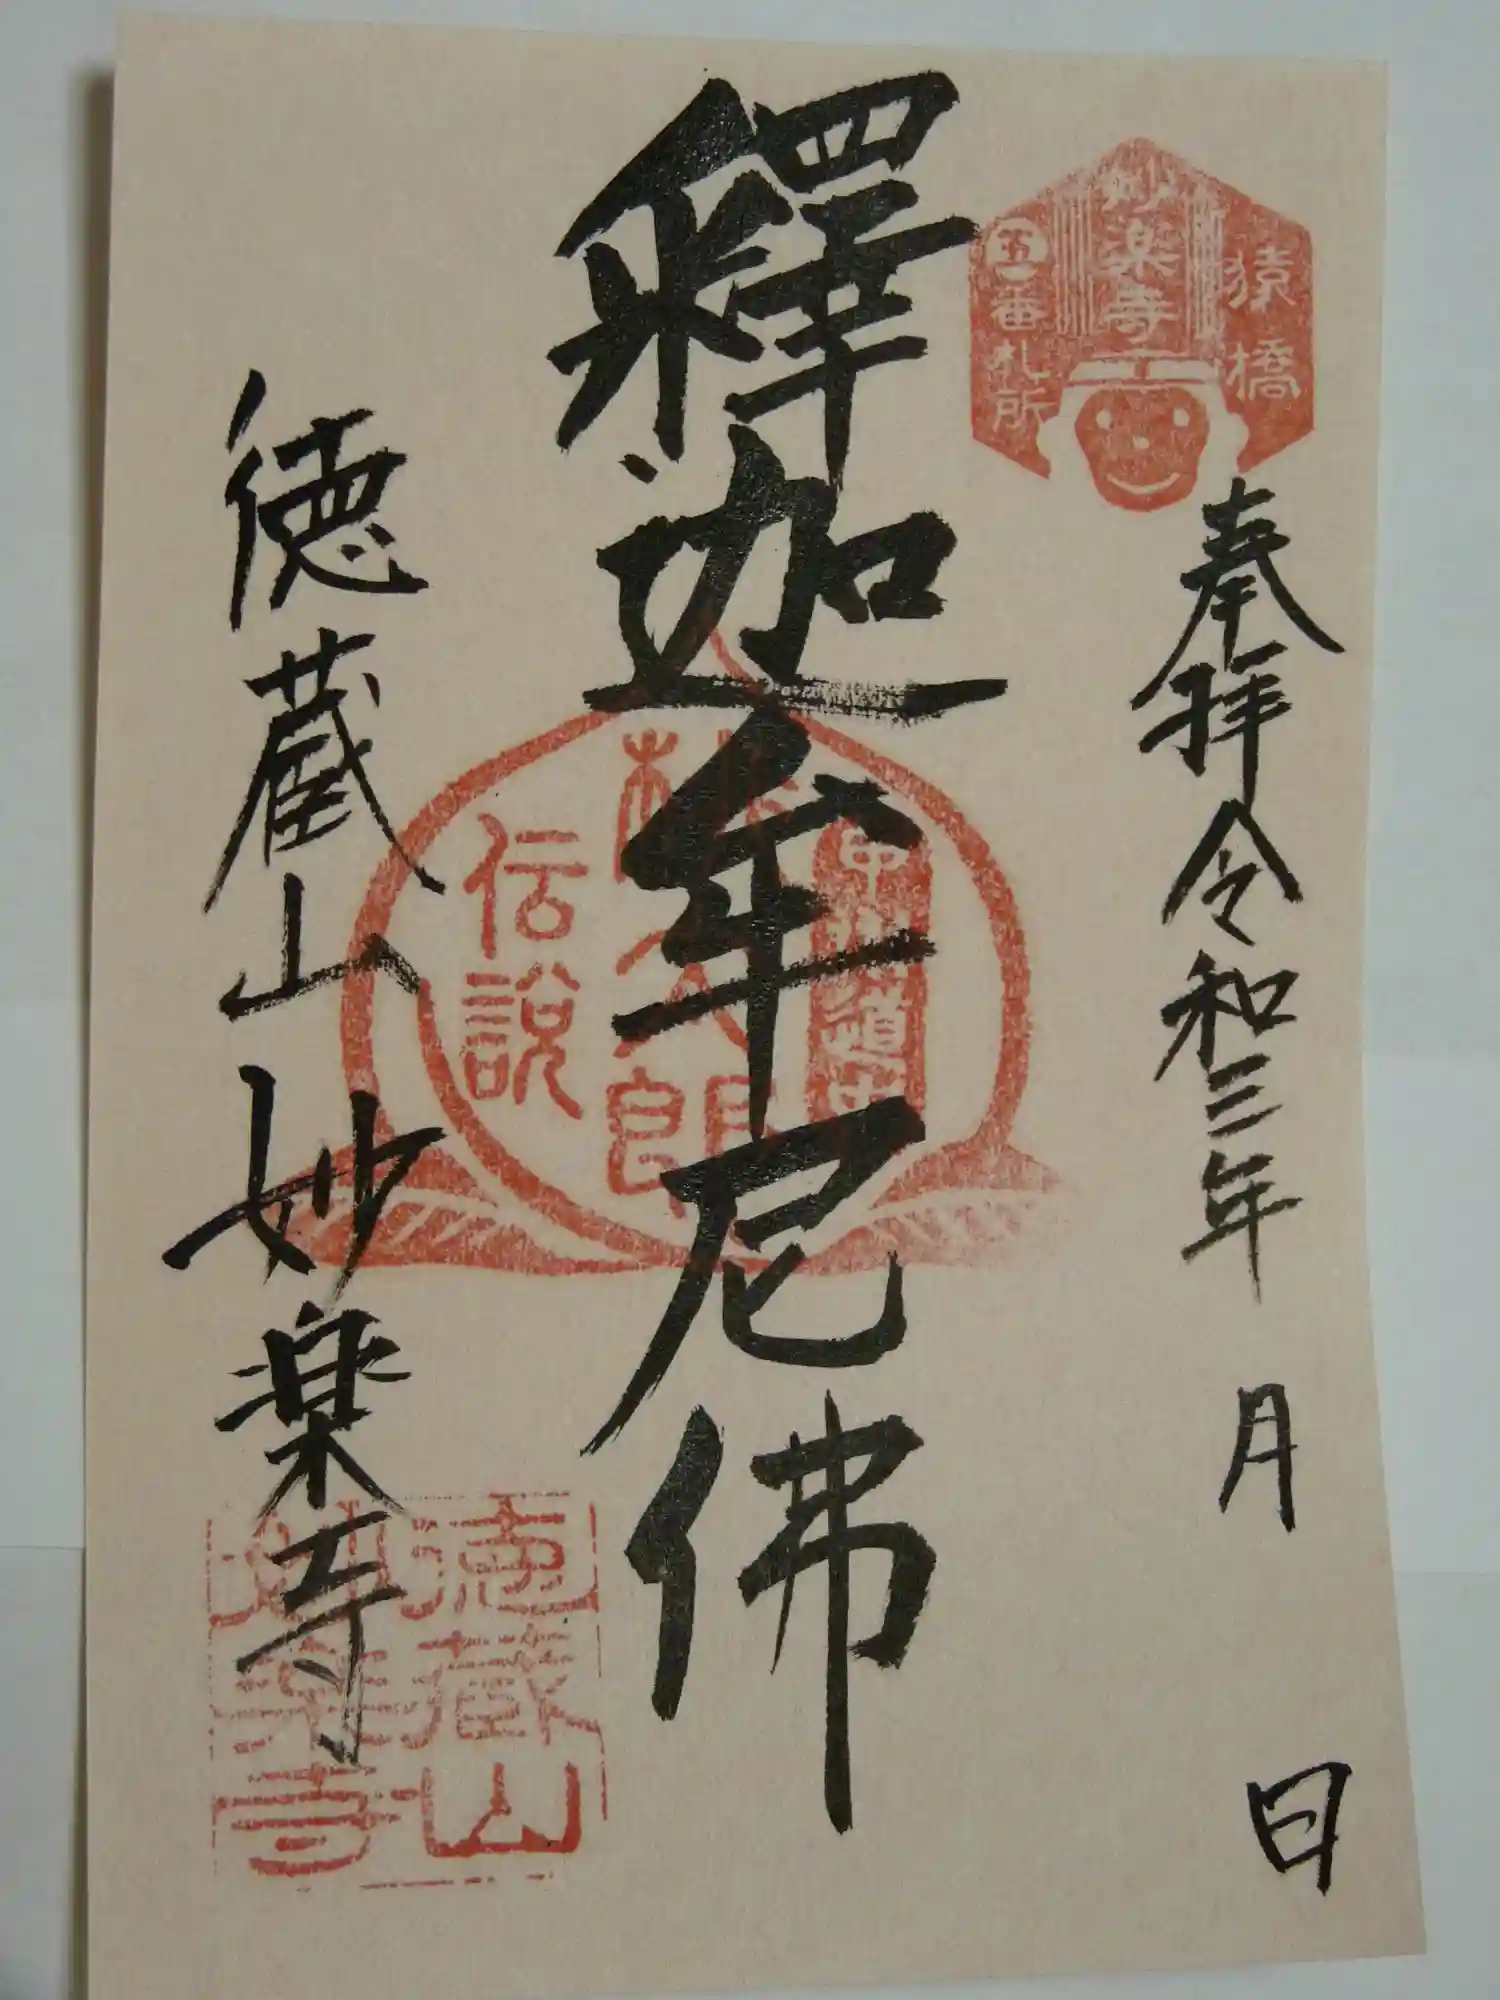 猿橋
妙楽寺
番札所
奉拝 令和三年 月 日
釋迦牟尼佛
甲州道中
桃太郎
伝説
徳蔵山 妙楽寺
徳蔵山
妙楽寺